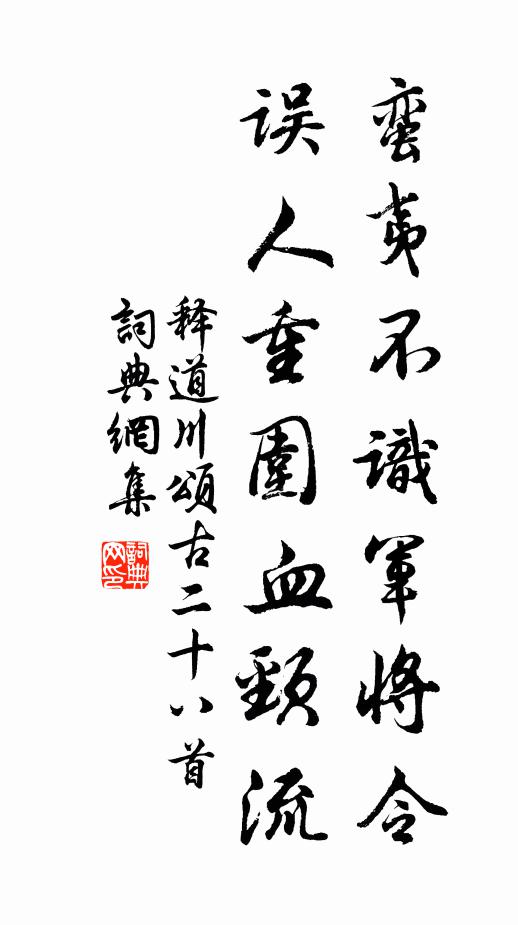 蛮夷不識軍將令
误人重圍血頸流
释道川頌古二十八首
詞典網集
詞典網印